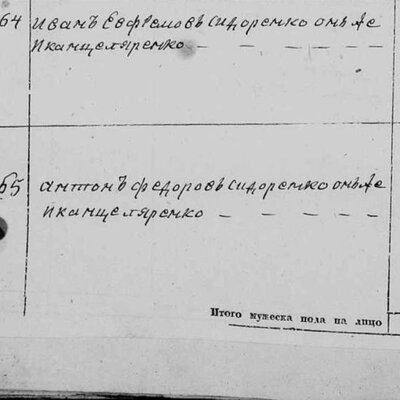 64 Иванъ Евфѣмовъ Сидоренко онъ же
И канцеляренко
65 антонъ федоровъ Сидоренко онъ же
и канцеляренко
Итого мужеска пола на лицо